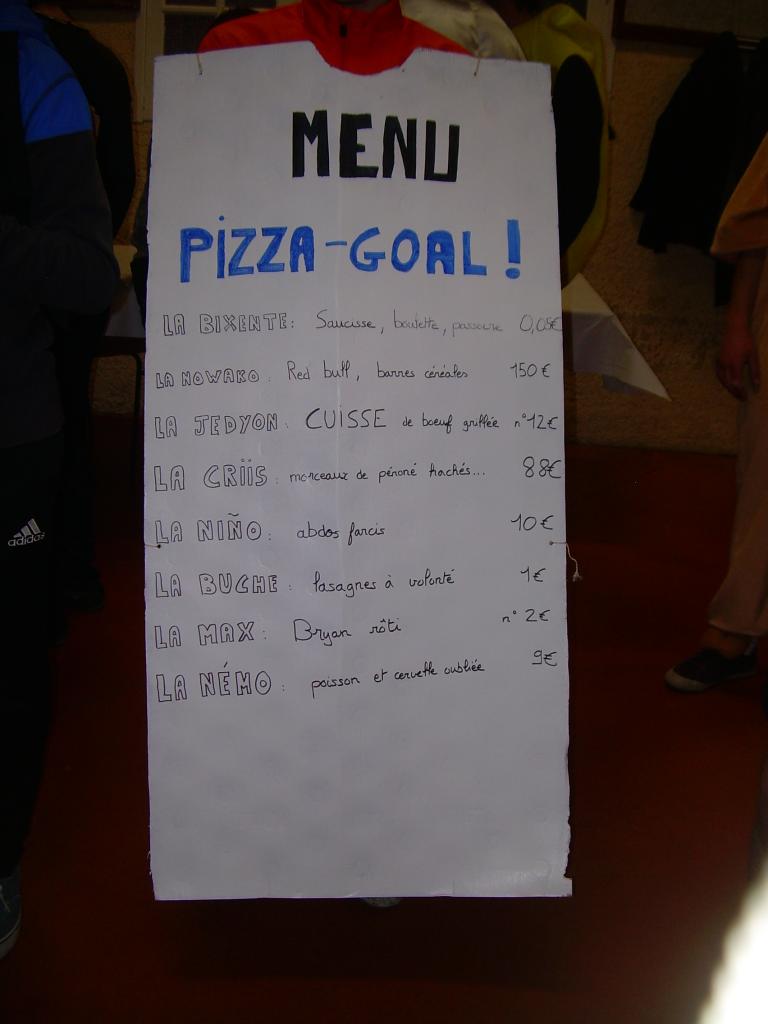 MENU
PIZZA-GOAL!
LA BIXENTE: Saucisse, boulette, passoire 0,05€
LA NOWAKO: Red bull, barres céréales 150€
LA JEDYON: CUISSE de boeuf grillée n°12€
LA CRIIS: morceaux de péroné hachés... 88€
LA NIÑO: abdos farcis 10€
LA BUCHE: lasagnes à volonté 1€
LA MAX: Bryan rôti n°2€
LA NÉMO: poisson et cervelle oubliée 9€
adidas